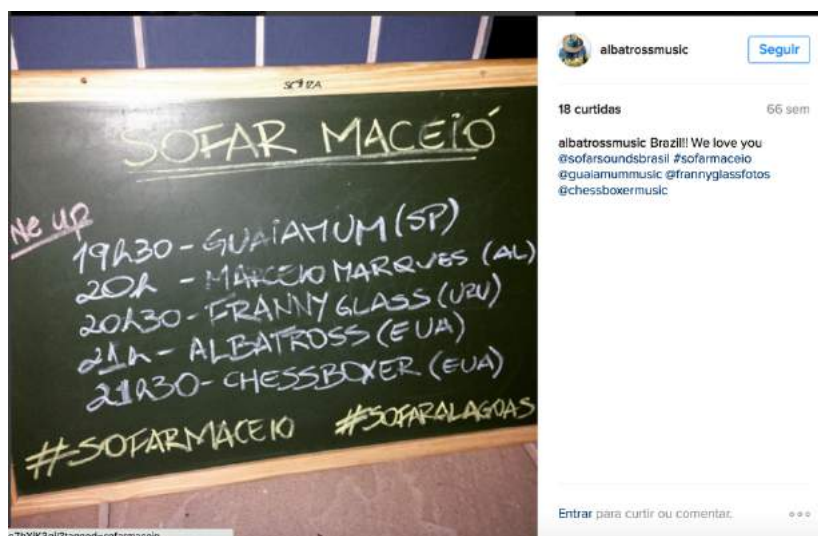 SOFAR MACEIÓ
Ne UP
19h30 - GUAIAMUM (SP)
20h - MARCELO MARQUES (AL)
20h30 - FRANNY GLASS (URU)
21h - ALBATROSS (EUA)
21h30 - CHESSBOXER (EUA)
#SOFARMACEIO #SOFARALAGOAS
albatrossmusic
Seguir
18 curtidas 66 sem
albatrossmusic Brazil!! We love you
@sofarsoundsbrasil #sofarmaceio
@guaiamummusic @frannyglassfotos
@chessboxermusic
Entrar para curtir ou comentar.